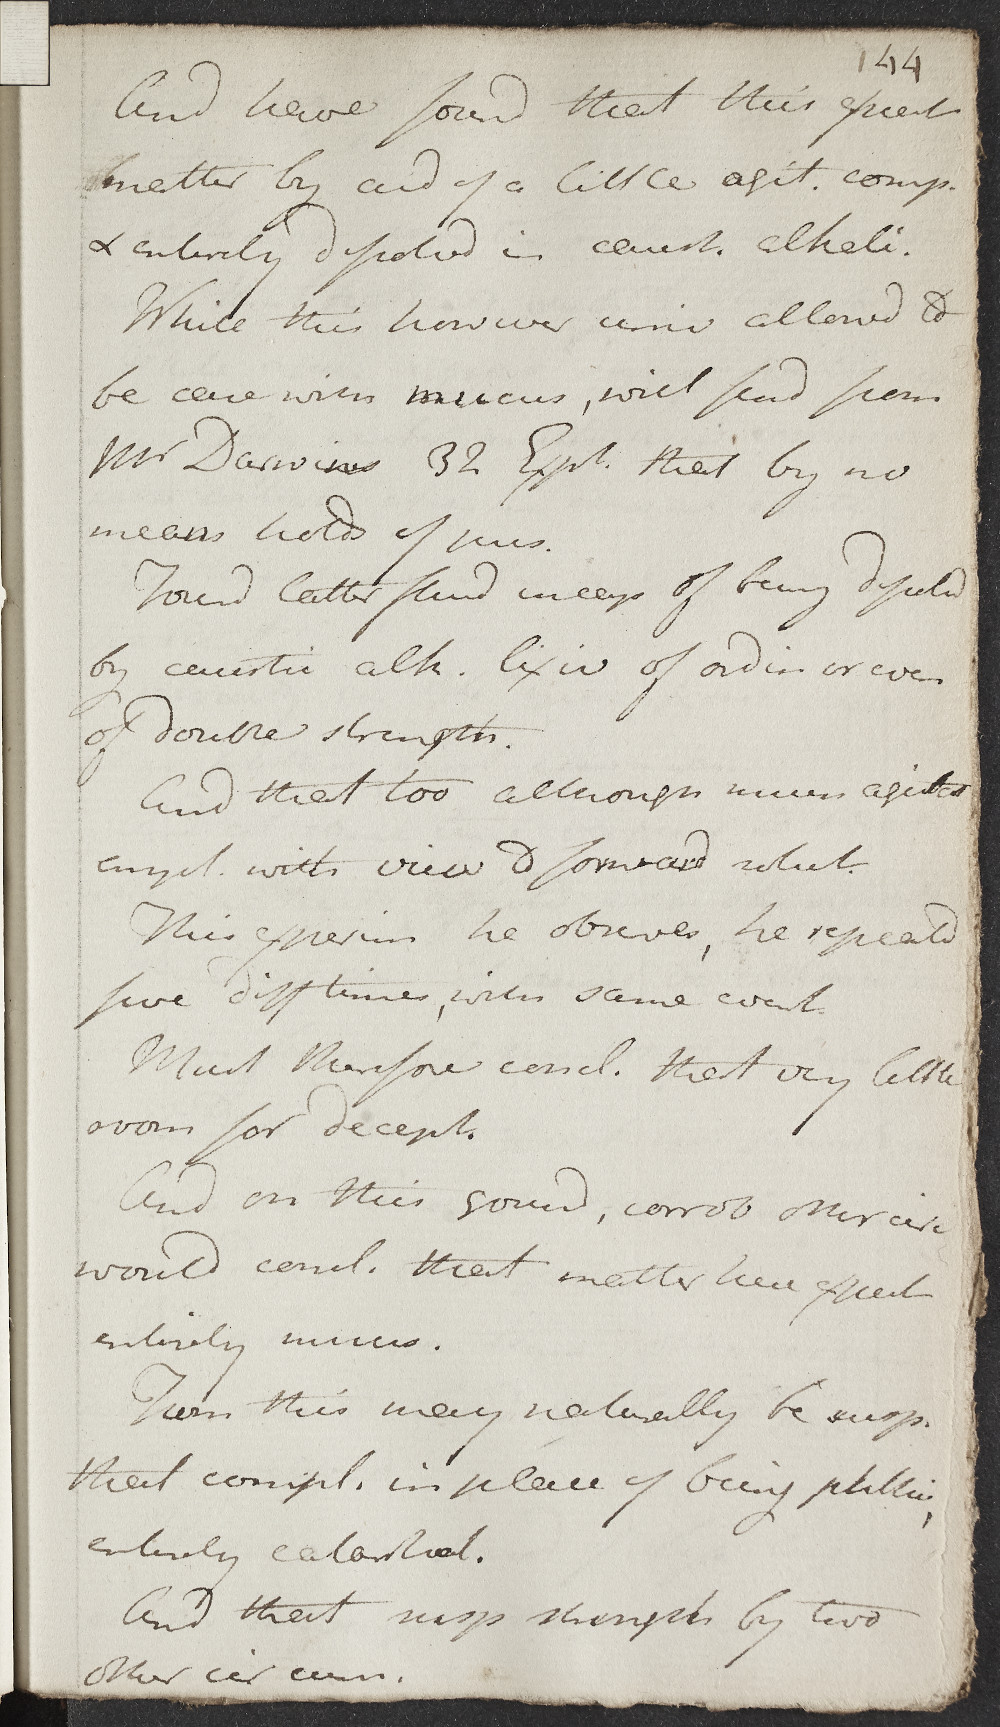 144
And have found that this expect
matter by aid of a little agit. comp.
& entirely dissolved in caust. alkali.
While this however univ allowed to
be case with mucus, will find from
Mr Darwins 32 Expt. that by no
means holds of pus.
Found latter fluid incap of being dissolvd
by caustic alk. lixiv of ordin or even
of double strength.
And that too although much agitat
empl. with view to forward solut.
This experim he observes, he repeatd
five diff times, with same event.
Must therefore concl. that very little
room for decept.
And on this ground, corrob other circ
would concl. that matter here expect
entirely mucus.
From this may naturally be susp.
that compl. in place of being phthis,
entirely catarrhal.
And that susp strength by two
other circum.